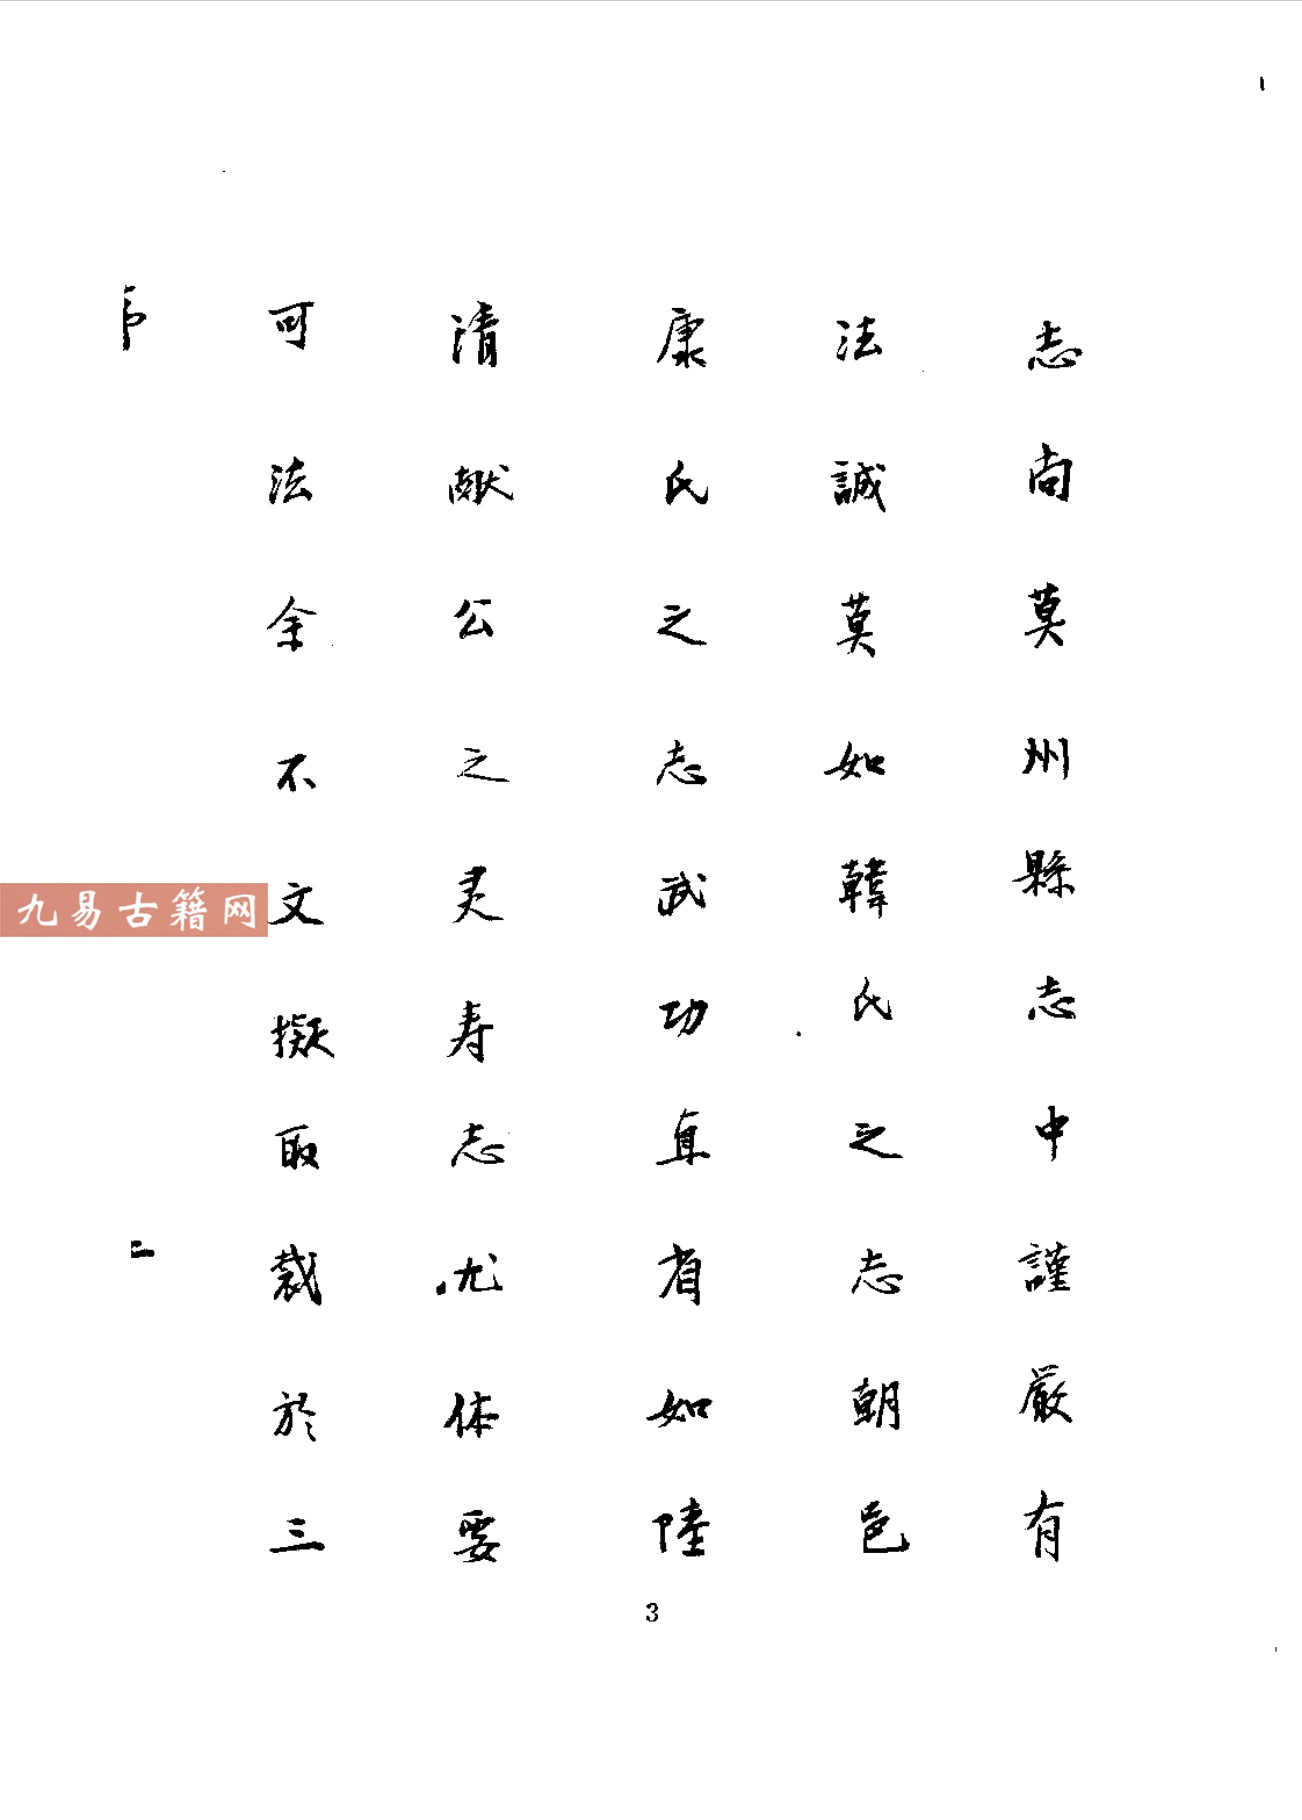 志尚莫州縣志中謹嚴有
法誠莫如韓氏之志朝邑
康氏之志武功直省如陸
清献公之灵寿志尤体要
可法余不文擬取裁於三
序
二
九易古籍网
3